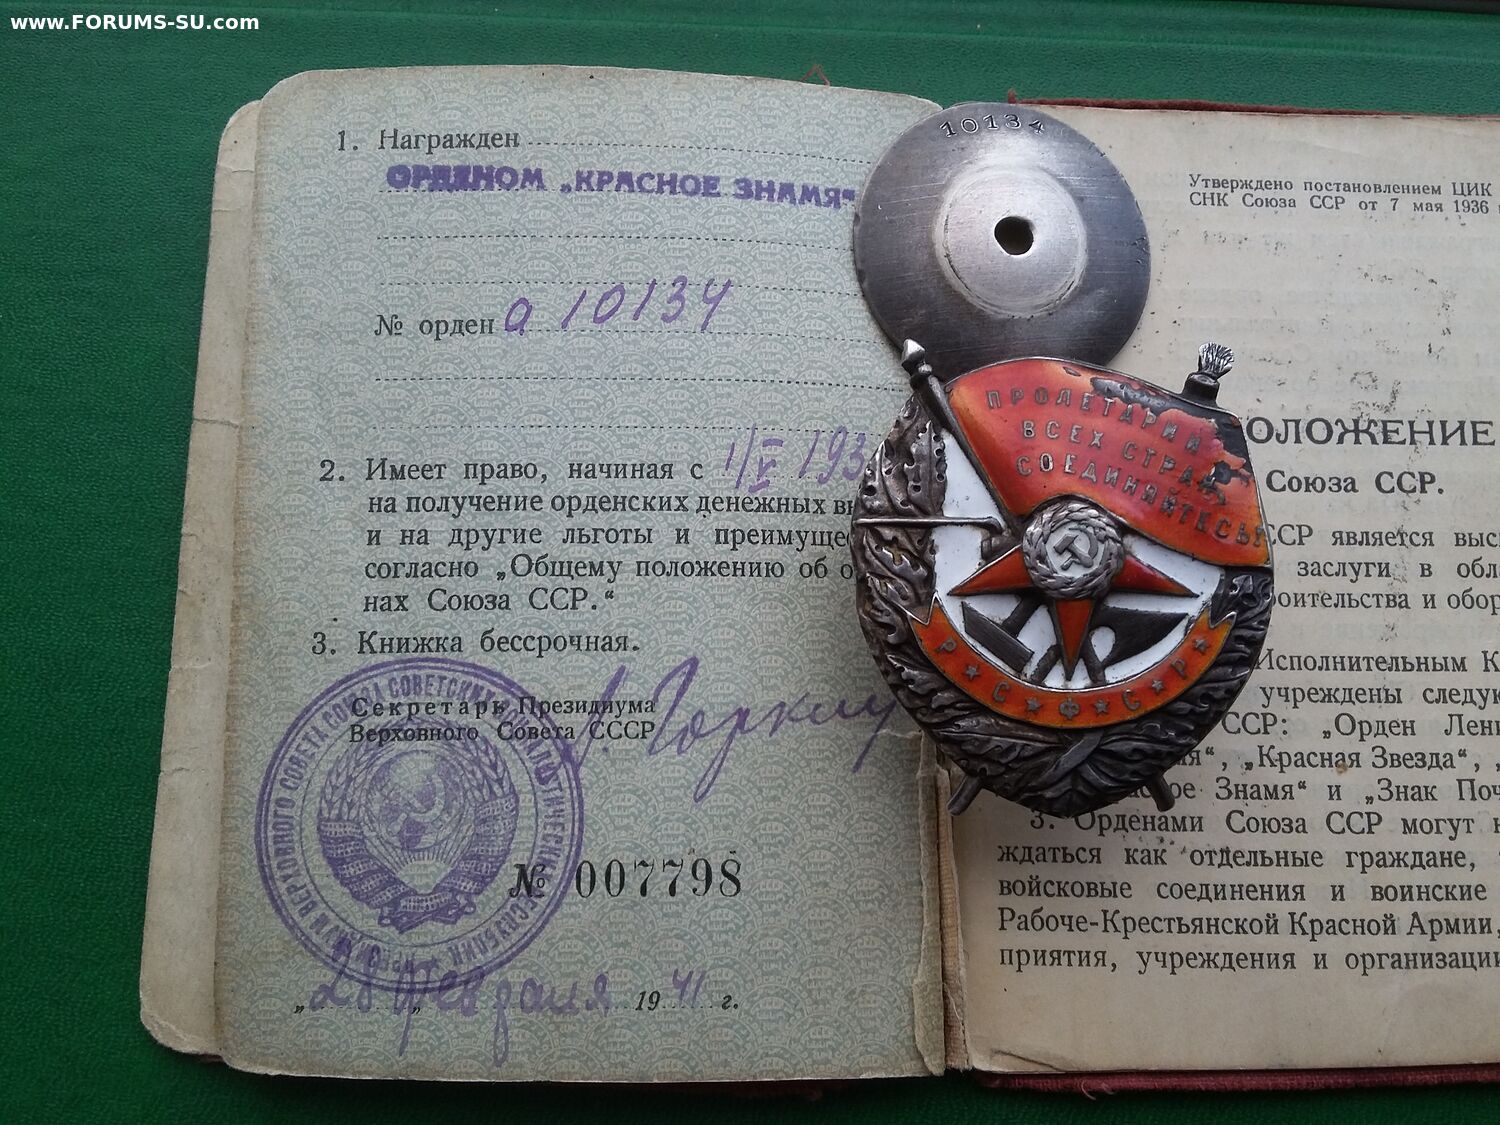 www.FORUMS-SU.com
1. Награжден
ОРДЕНОМ „КРАСНОЕ ЗНАМЯ“
№ орден а 10134
2. Имеет право, начиная с 1/V 193
на получение орденских денежных вы
и на другие льготы и преимуще
согласно „Общему положению об о
нах Союза ССР.“
3. Книжка бессрочная.
Секретарь Президиума
Верховного Совета СССР
№ 007798
„28“ февраля 1941 г.
10134
ПРОЛЕТАРИИ
ВСЕХ СТРАН
СОЕДИНЯЙТЕСЬ
Р С Ф С Р
Утверждено постановлением ЦИК
СНК Союза ССР от 7 мая 1936
ОЛОЖЕНИЕ
Союза ССР.
ССР является выс
заслуги в обл
роительства и обор
Исполнительным К
учреждены следую
ССР: „Орден Лени
я“, „Красная Звезда“,
ное Знамя“ и „Знак Поч
3. Орденами Союза ССР могут н
ждаться как отдельные граждане,
войсковые соединения и воинские
Рабоче-Крестьянской Красной Армии,
приятия, учреждения и организации